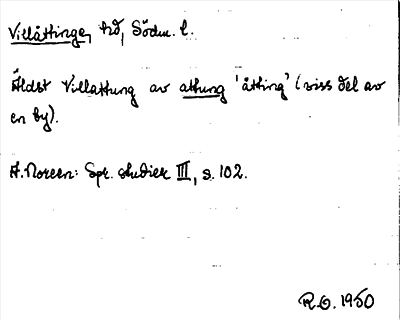 Villåttinge, hd, Södm. l.
Äldst Villattung av attung 'åtting' (viss del av
en by).
A. Noreen: Spr. studier III, s. 102.
R.O. 1950